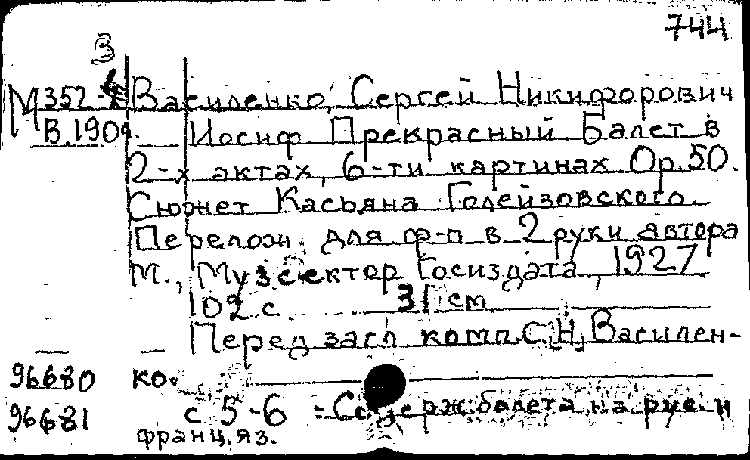 744
3
М 352-
Василенко, Сергей Никифорович
В.190
Иосиф Прекрасный Балет в
2-х актах, 6-ти картинах Op.50.
Сюжет Касьяна Голейзовского.
Перелож. для ф-п в 2 руки автора
М., Музсектор Госиздата, 1927
102 с. 31 см
Перед загл комп. С.Н. Василен-
96680 ко.
96681 с 5-6 = Содерж. балета на рус. и
франц. яз.